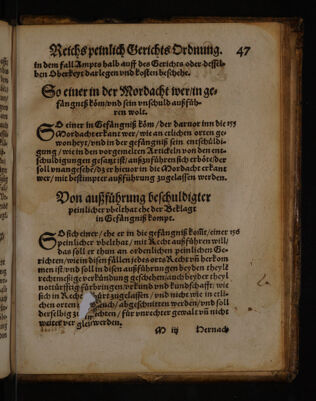 Reichs peinlich Gerichts Ordnung. 47
in dem fall Ampts halb auff des Gerichts oder dessel-
ben Oberkeyt darlegen vnd kosten beschehe.
So einer in der Mordacht wer/in ge-
fängniß köm/vnd sein vnschuld außfüh-
ren wolt.
SO einer in Gefängniß köm / der daruor inn die 155
Mordacht erkant wer / wie an etlichen orten ge-
wonheyt / vnd in der gefängniß sein entschüldi-
gung / wie in den vorgemelten Artickeln von den ent-
schuldigungen gesatzt ist / außzuführen sich erböte / der
soll vnangesehē / dz er hieuor in die Mordacht erkant
wer / mit bestimpter außführung zugelassen werden.
Von außführung beschuldigter
peinlicher vbelthat ehe der Beklagt
in Gefängniß kompt.
SO sich einer / ehe er in die gefängniß köme / einer 156
peinlicher vbelthat / mit Recht außführen will /
das soll er thun an ordenlichen peinlichen Ge-
richten / wie in disen fällen jedes orts Recht vñ herkom
men ist / vnd soll in disen außführungen beyden theylē
rechtmessige verkündung geschehen / auch beyder theyl
notturfftig fürbringen / vrkund vnd kundschafft / wie
sich in Recht zugelassen / vnd nicht wie in etli-
chen orten abgeschnitten werden / vnd soll
derselbig für vnrechter gewalt vñ nicht
weiter werden.
M iij Hernach